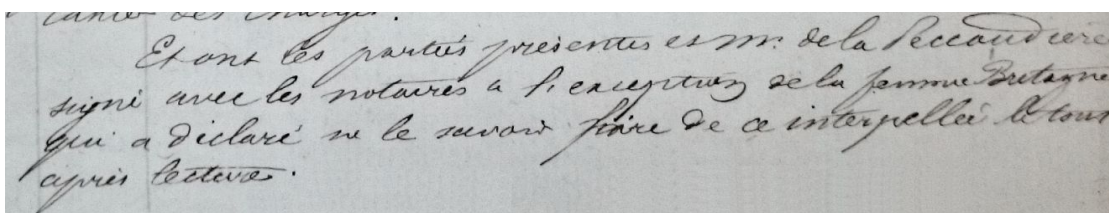 cahier des charges.
Et ont les parties présentes et Mr. de la Peccaudière
signé avec les notaires à l'exception de la femme Bretagne
qui a déclaré ne le savoir faire de ce interpellée le tout
après lecture.